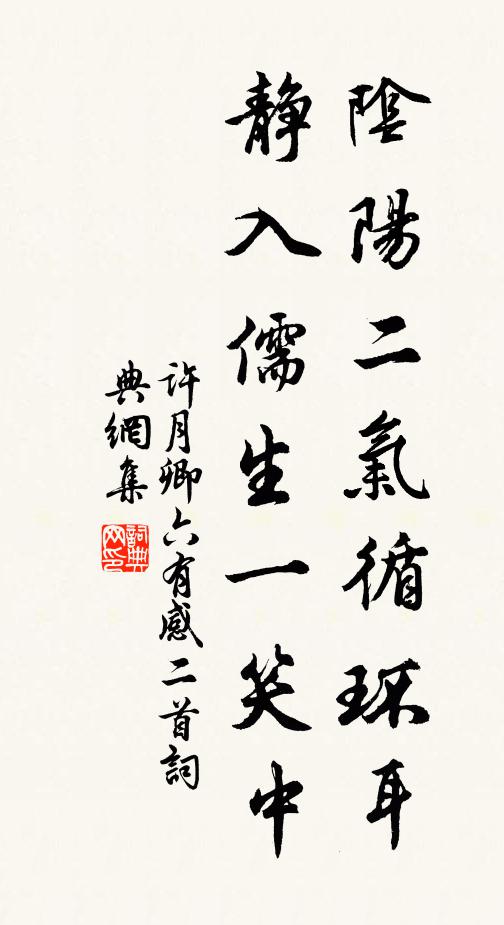 陰陽二氣循环耳
靜入儒生一笑中
许月卿六有感二首詞
典網集
詞典网印